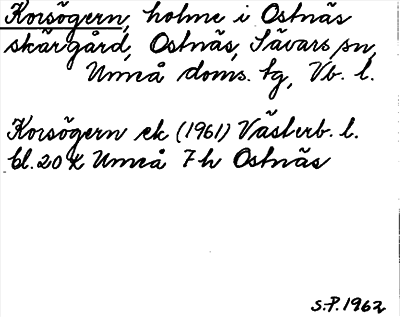 Korsögern, holme i Ostnäs
skärgård, Ostnäs, Sävars sn,
Umeå doms. tg, Vb. l.
Korsögern ek (1961) Västerb. l.
bl. 20 X Umeå 7 h Ostnäs
S.P. 1962